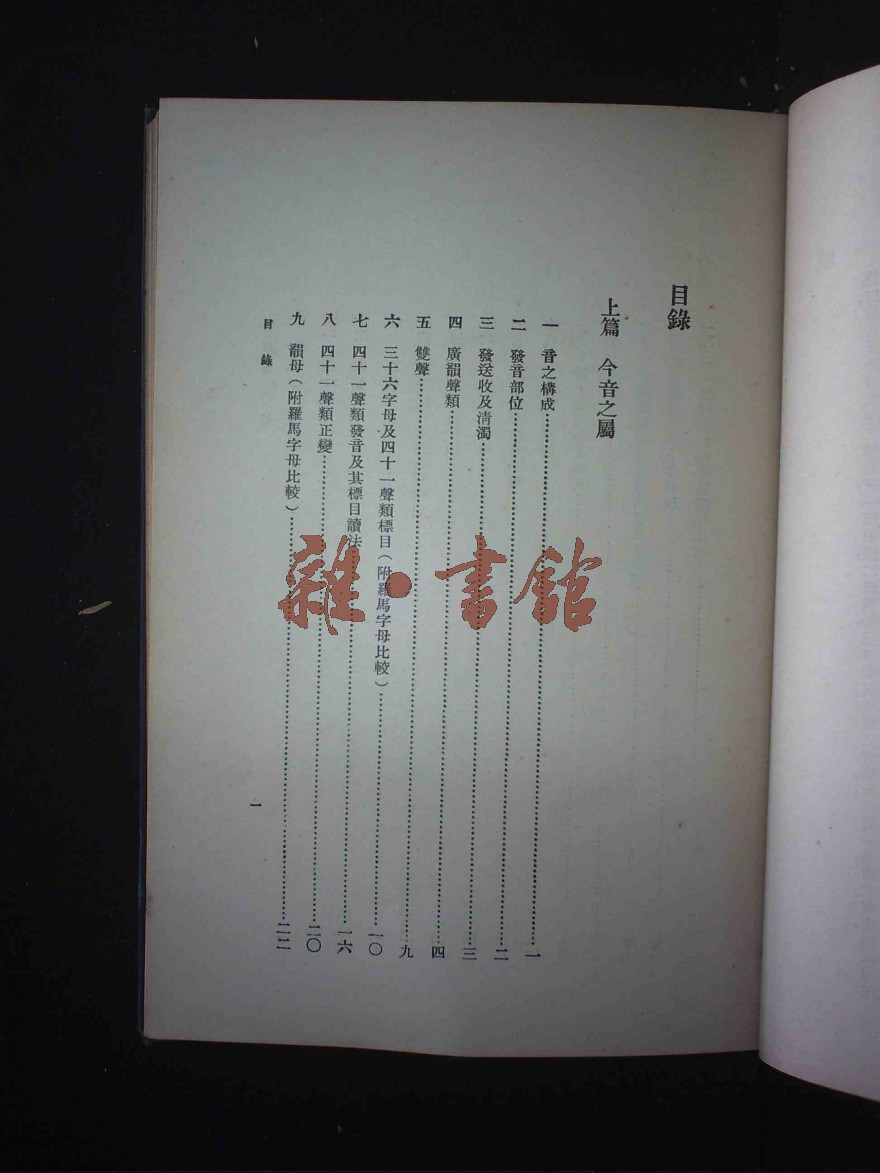 目錄
上篇 今音之屬
一 音之構成……一
二 發音部位……二
三 發送收及清濁……三
四 廣韻聲類……四
五 雙聲……九
六 三十六字母及四十一聲類標目(附羅馬字母比較)……一〇
七 四十一聲類發音及其標目讀法……一六
八 四十一聲類正變……二〇
九 韻母(附羅馬字母比較)……二二
目錄
一
雜·書館